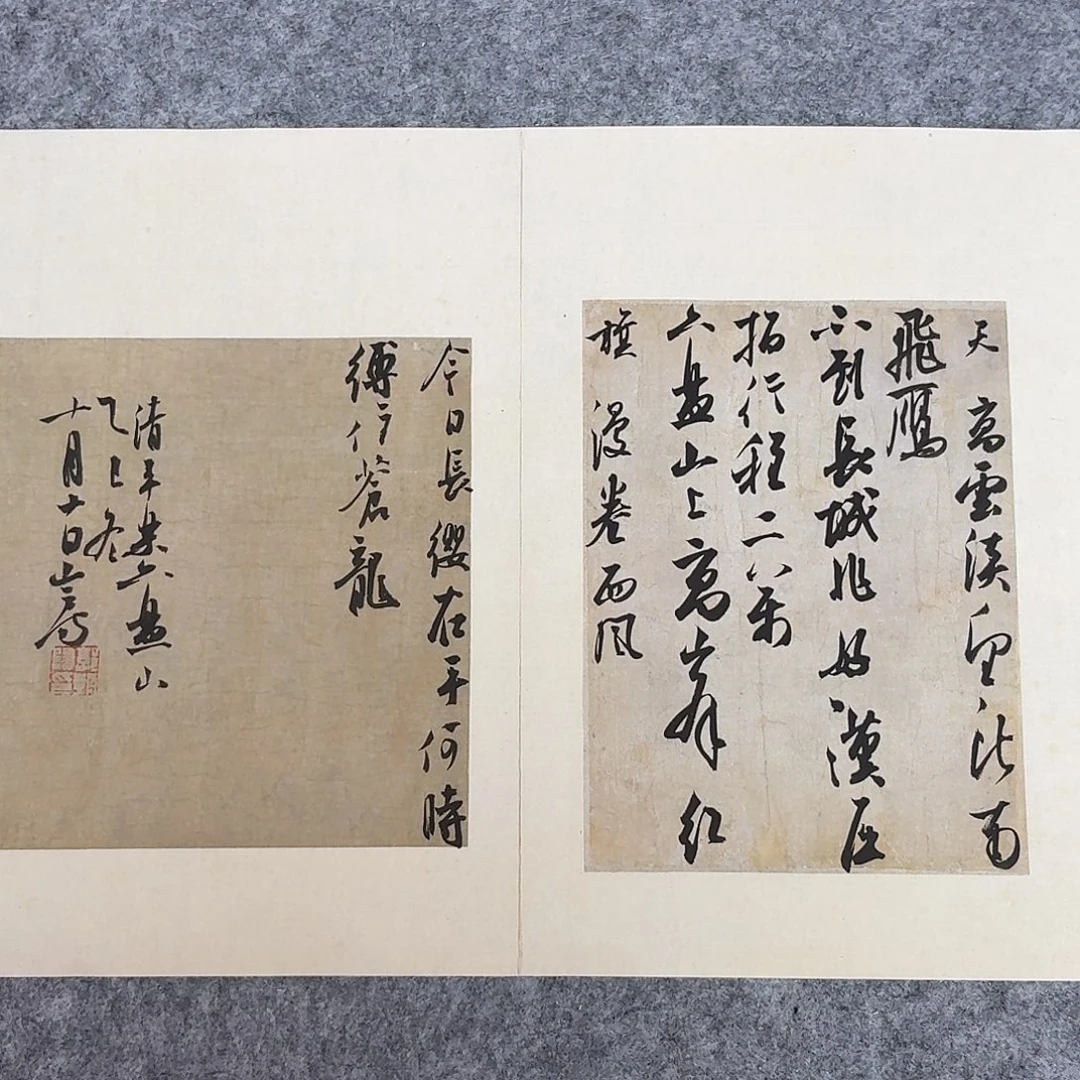 天高雲淡望斷南
飛鴈
不到長城非好漢屈
指行程二萬
六盤山上高峰紅
旗漫卷西風
今日長纓在手何時
縛住蒼龍
清平樂六盤山
乙巳冬
十月十日